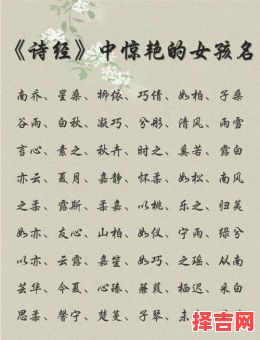 《诗经》中惊艳的女孩名
南乔、星桑、柳依、巧倩、如柏、子桑
谷雨、白秋、凝巧、兮彤、清风、雨雪
言心、素之、秋卉、时之、奠若、露白
亦云、夏月、嘉静、怀柔、如松、南风
之柔、露斯、柔嘉、以桃、乐之、归芙
如亦、友心、山柏、如仪、宁雨、绿兮
以亦、云露、嘉笙、如巧、之瑶、从南
芸华、今夏、心臻、蒹葭、栖迟、采白
思柔、馨宁、楚蔓、子琴、未
择吉网